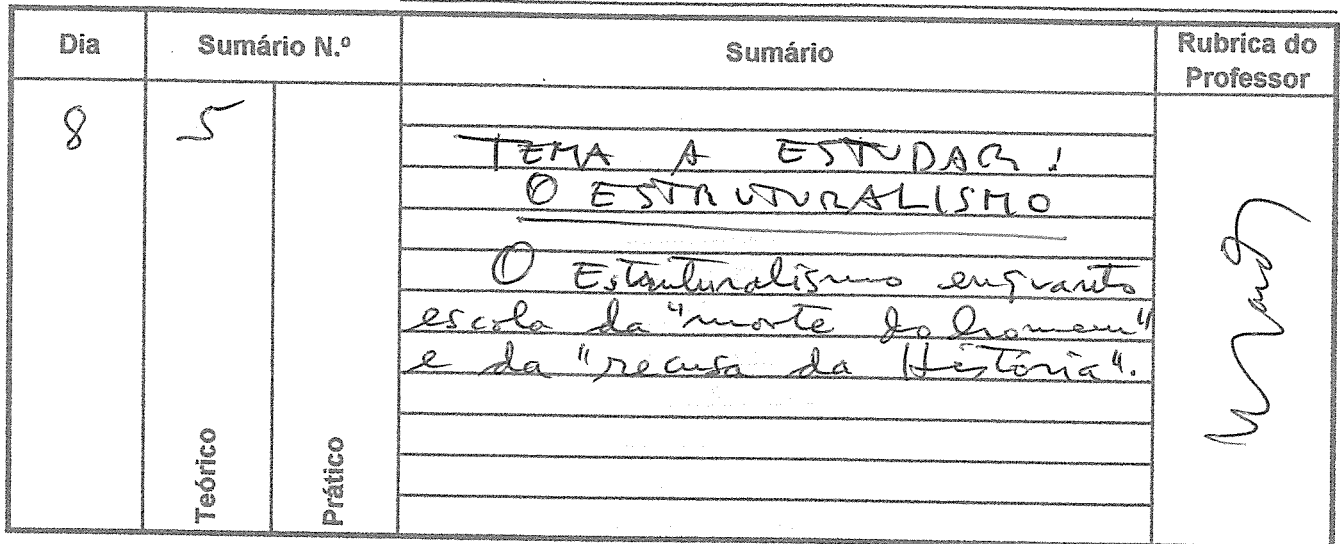 Dia Sumário N.º Sumário Rubrica do Professor
8 5
TEMA A ESTUDAR!
O ESTRUTURALISMO
O Estruturalismo enquanto
escola da "morte do homem"
e da "recusa da História".
Teórico Prático